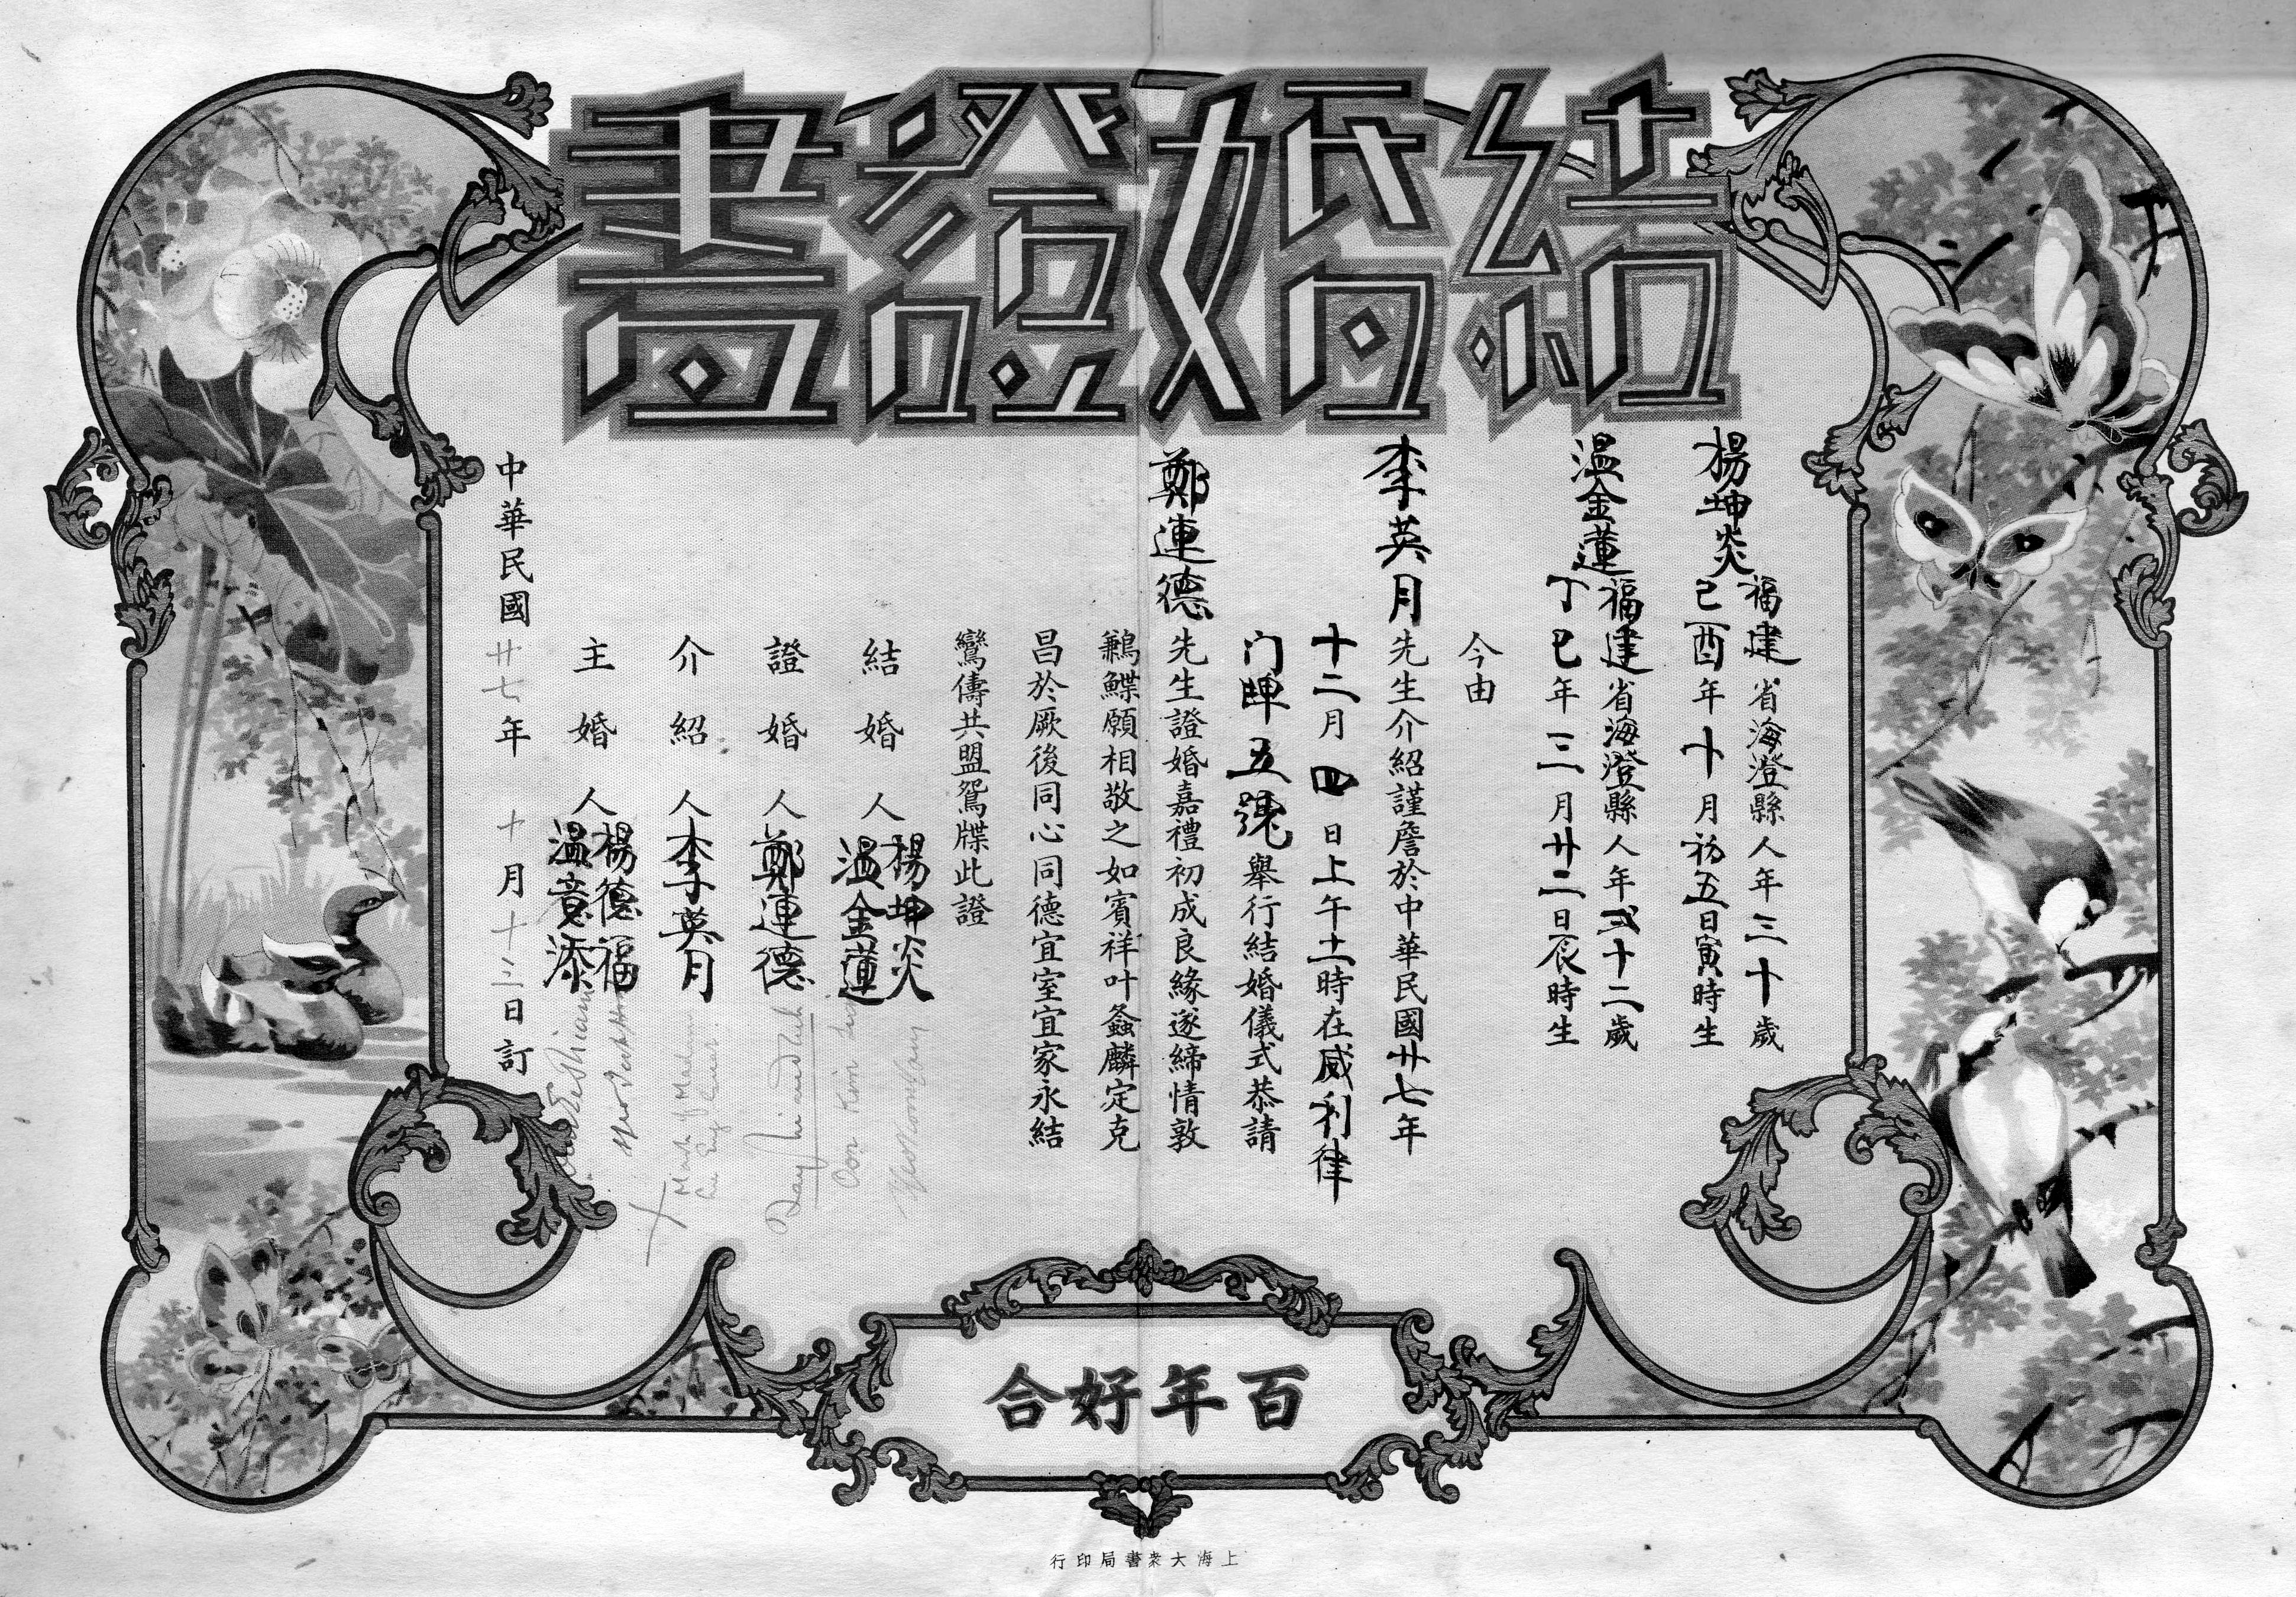 結婚證書
楊坤炎
福建省海澄縣人年三十歲
己酉年十月初五日寅時生
溫金蓮
福建省海澄縣人年弍十二歲
丁巳年三月廿二日辰時生
今由
李英月先生介紹謹詹於中華民國廿七年
十二月四日上午十一時在威利律
门牌五號舉行結婚儀式恭請
鄭連德先生證婚嘉禮初成良緣遂締情敦
鶼鰈願相敬之如賓祥叶螽麟定克
昌於厥後同心同德宜室宜家永結
鸞儔共盟鴛牒此證
結婚人 楊坤炎
溫金蓮
證婚人 鄭連德
介紹人 李英月
主婚人 楊德福
溫意添
Oon Kim
Mark of Madam
中華民國廿七年十月十三日訂
百年好合
上海大衆書局印行